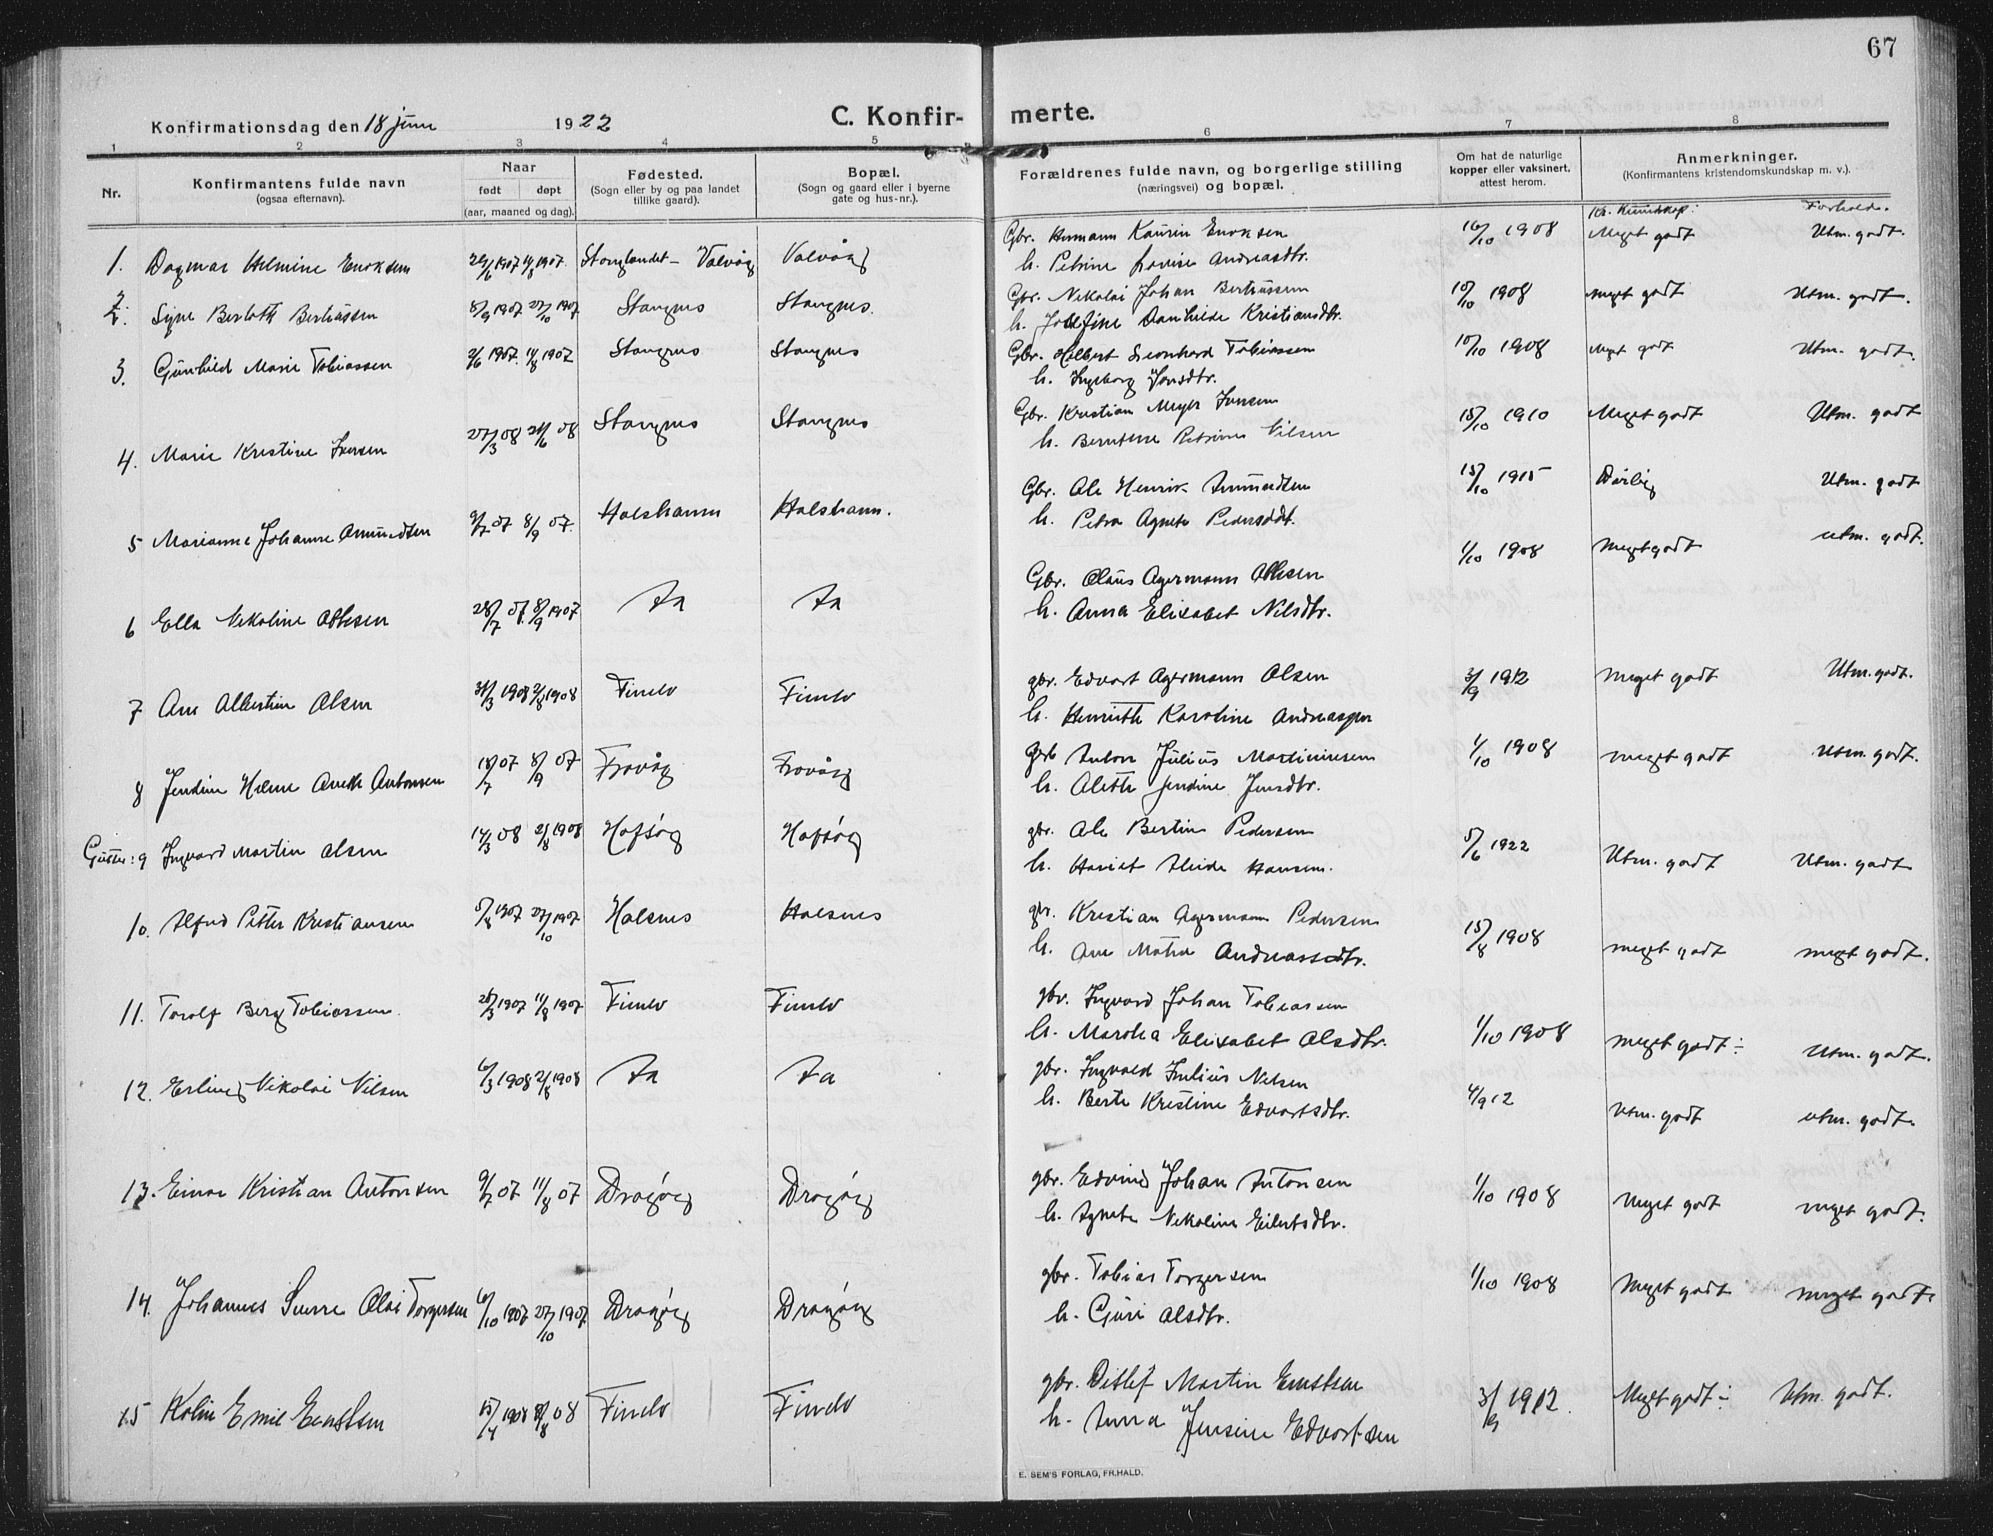 67
Konfirmationsdag den 18 juni 1922
C. Konfirmerte.
1 2 3 4 5 6 7 8
Nr.
Konfirmantens fulde navn
(ogsaa efternavn).
Naar
født døpt
(aar, maaned og dag).
Fødested.
(Sogn eller by og paa landet
tillike gaard).
Bopæl.
(Sogn og gaard eller i byerne
gate og hus-nr.).
Forældrenes fulde navn, og borgerlige stilling
(næringsvei) og bopæl.
Om hat de naturlige
kopper eller vaksinert,
attest herom.
Anmerkninger.
(Konfirmantens kristendomskundskap m. v.).
Kr. Kundskap: Forhold.
1. Dagmar Helmine Enoksen 1907 1907. Stanglandet - Valvåg Valvåg Gbr. Hermann Kaurin Enoksen 16/10 1908 Meget godt Utm. godt.
h. Petrine Lovise Andreasdtr.
2. Syne Berloth Berthussen 8/9 1907 27/10 1907 Stangnes Stangnes. Gbr. Nikolai Johan Berthussen 10/10 1908 meget godt Utm. godt.
h. Josefine Danhilde Kristiansdtr.
3. Gunhild Marie Tobiassen 2/6 1907 11/8 1907 Stangnes Stangnes Gbr. Hilbert Leonhard Tobiassen 10/10 1908 Meget godt Utm. godt.
h. Ingeborg Jonsdtr.
4. Marie Kristine Iversen 27/3 08 21/6 08 Stangnes Stangnes Gbr. Kristian Meyer Iversen 15/10 1910 Meget godt Utm. godt
h. Berntine Petrine Nilsen
5 Marianne Johanne Amundsen 9/7 07 8/9 07. Halshamn Halshamn. Gbr. Ole Henrik Amundsen 15/10 1915 Dårlig Utm. godt
h. Petra Agnete Pedersdtr.
6 Ella Nikoline Ottesen 28/7 07 8/9 1907. Aa Aa Gbr. Claus Agermann Ottesen 1/10 1908 Meget godt utm. godt.
h. Anna Elisabet Nilsdtr.
7 Ane Albertine Olsen 31/3 1908 2/8 1908 Finelv Finelv gbr. Edvart Agermann Olsen 3/9 1912 Meget godt Utm. godt.
h. Henriette Karoline Andreassen
8 Jendine Helene Anette Antonsen 18/7 07 8/9 07 Frovåg Frovåg gbr. Anton Julius Martinussen 1/10 1908 meget godt Utm. godt.
h. Alette Jendine Jensdtr.
Gutter: 9 Ingvard Martin Olsen 14/3 08 2/8 1908 Hofsøy Hofsøy gbr. Ole Bertin Pedersen 5/6 1922 Utm. godt Utm. godt
h. Hariet Alvide Hansen.
10. Alfred Petter Kristiansen 1907 27/10 1907 Halsnes Halsnes gbr. Kristian Agermann Pedersen 15/8 1908 meget godt meget godt.
h. Ane Matea Andreassdtr.
11. Torolf Berg Tobiassen. 28/3 1907 11/8 1907. Finelv Finelv gbr. Ingvard Johan Tobiassen 1/10 1908 meget godt ÷ Utm. godt.
h. Martha Elisabet Olsdtr.
12. Erling Nikolai Nilsen 6/3 1908 2/8 1908 Aa Aa gbr. Ingvald Julius Nilsen 4/9 12 utm. godt utm. godt.
h. Berte Kristine Edvartsdtr.
13. Einar Kristian Antonsen 9/7 07 11/8 07 Dragøy Dragøy gbr. Edvind Johan Antonsen 1/10 1908 Meget godt meget godt.
h. Agnete Nikoline Eilertsdtr.
14. Johannes Sverre Olai Torgersen 6/10 1907 27/10 1907 Dragøy Dragøy gbr. Tobias Torgersen 1/10 1908 Meget godt meget godt
h. Guri Olsdtr.
15 Kolin Emil Ernstsen 15/4 1908 2/8 08 Finelv Finelv gbr. Ditlef Martin Ernstsen 3/9 1912. Meget godt ÷ Utm. godt.
h. Anna Jensine Edvartsen
E. SEM'S FORLAG, FR.HALD.